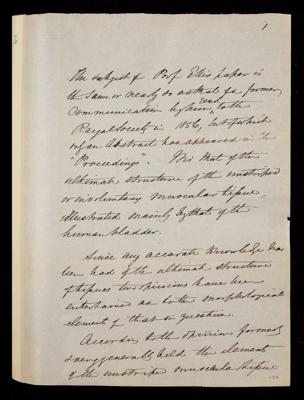 1
The subject of Prof Ellis' paper is
the same or nearly so as that of a former
Communication by him, read to the
Royal Society in 1856, but of which
only an Abstract has appeared in the
"Proceedings". Viz that of the
ultimate structure of the unstriped
or involuntary muscular tissue,
illustrated mainly by that of the
human bladder.
Since any accurate Knowledge has
been had of the ultimate structure
of tissues two opinions have been
entertained as to the morphological
element of that in question.
According to the opinion formerly
& very generally held the element
of the unstriped muscular tissue